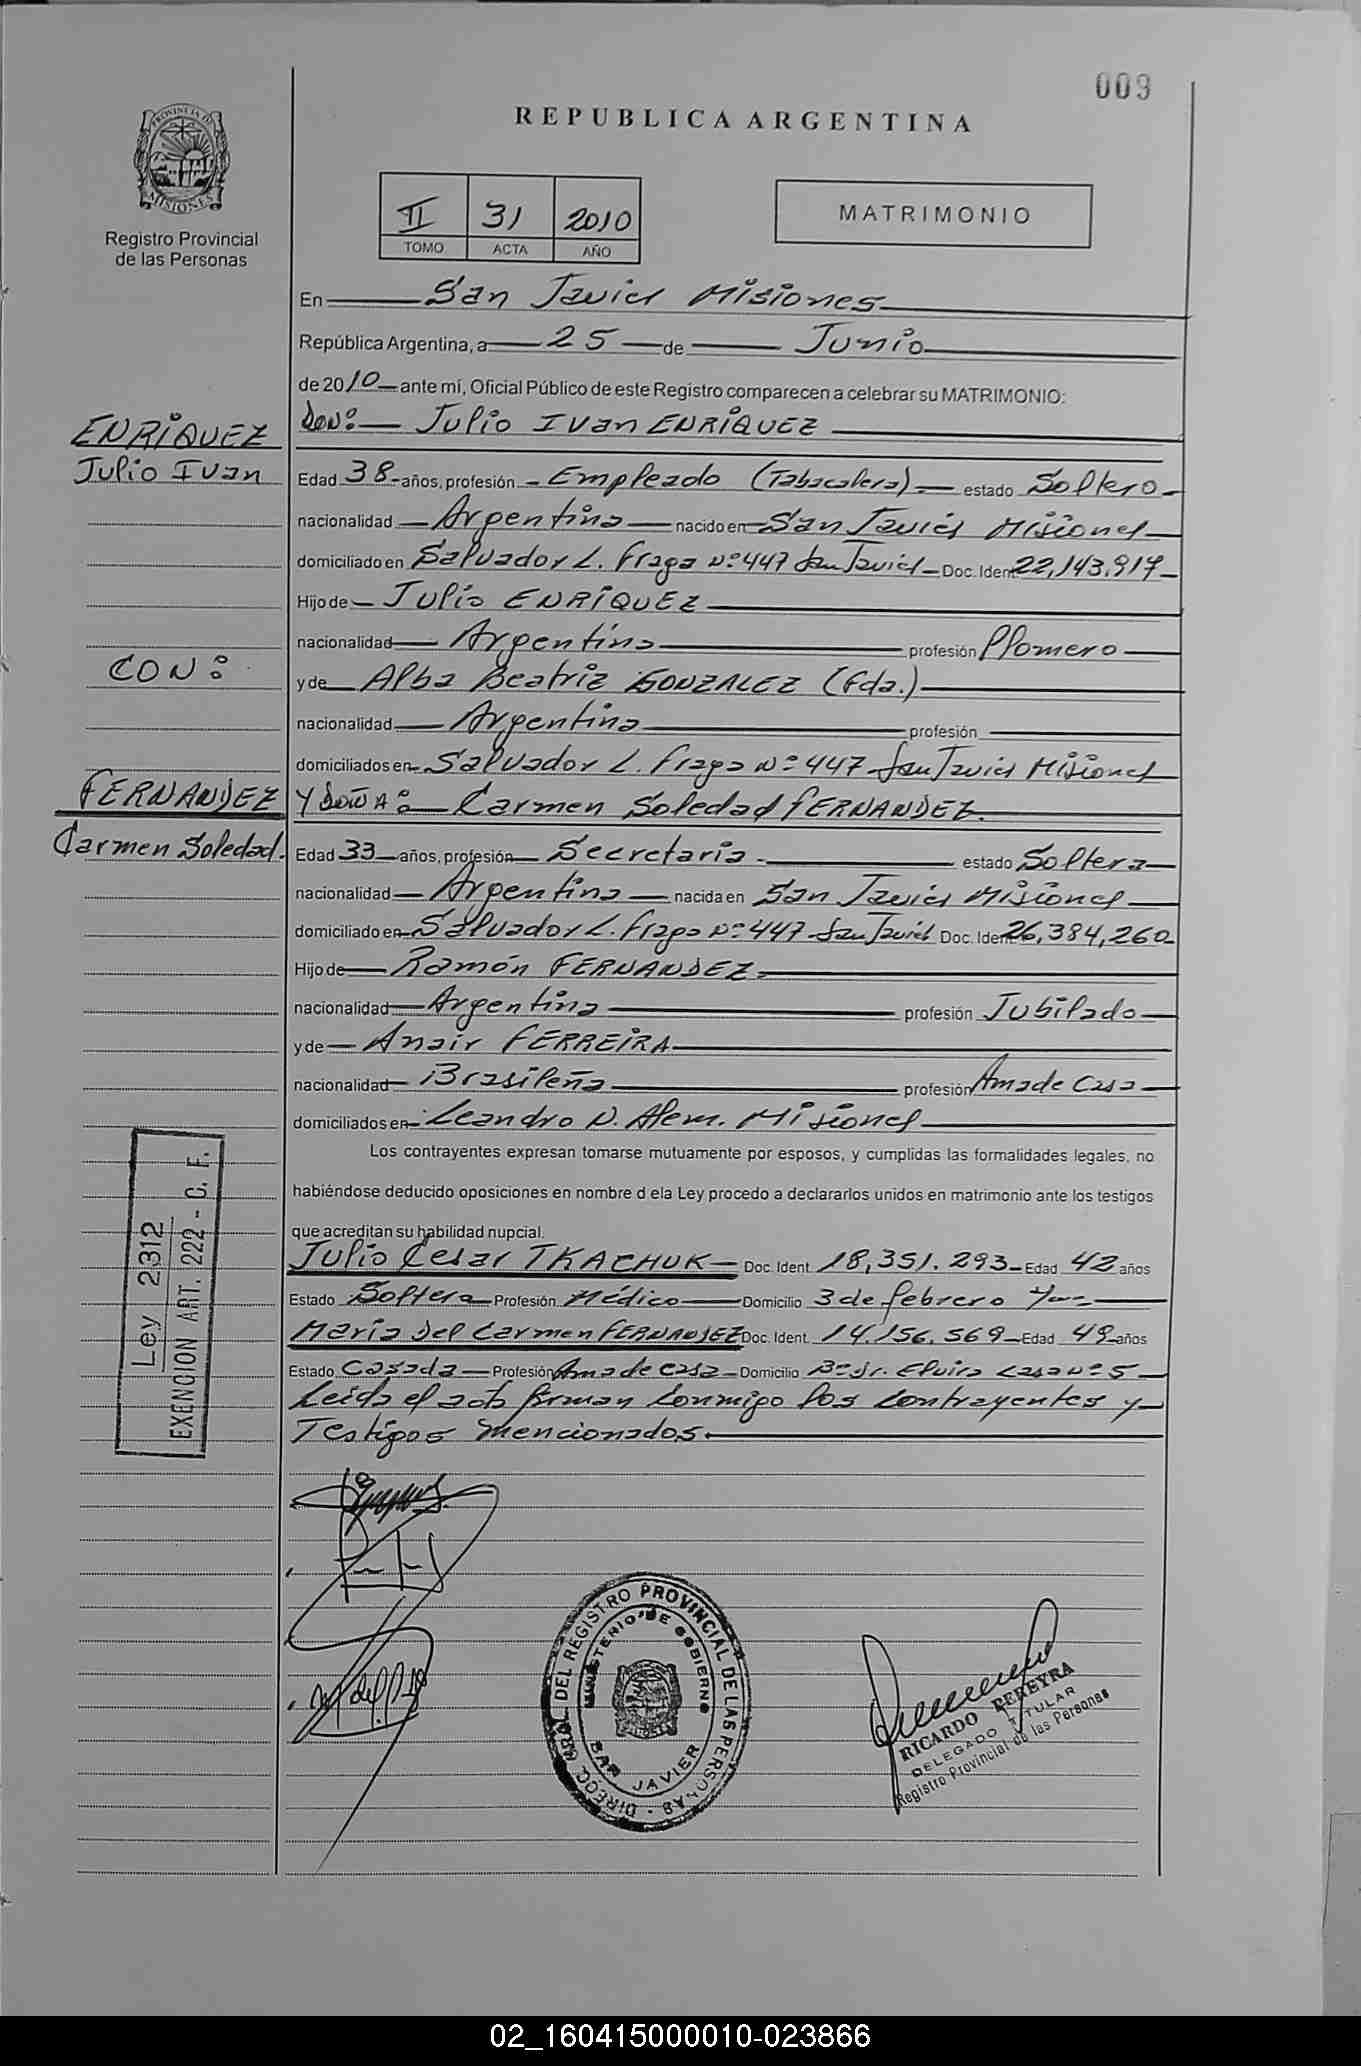 009
REPUBLICA ARGENTINA
PROVINCIA DE
MISIONES
Registro Provincial
de las Personas
II 31 2010
TOMO ACTA AÑO
MATRIMONIO
En San Javier Misiones
República Argentina, a 25 de Junio
de 2010 ante mí, Oficial Público de este Registro comparecen a celebrar su MATRIMONIO:
ENRIQUEZ
Julio Ivan
CON:
FERNANDEZ
Carmen Soledad.
Don: Julio Ivan ENRIQUEZ
Edad 38 años, profesión Empleado (Tabacalera) estado Soltero
nacionalidad Argentina nacido en San Javier Misiones
domiciliado en Salvador L. Fraga Nº 447 San Javier Doc. Ident. 22,143.917
Hijo de Julio ENRIQUEZ
nacionalidad Argentina profesión Plomero
y de Alba Beatriz GONZALEZ (Fda.)
nacionalidad Argentina profesión
domiciliados en Salvador L. Fraga Nº 447 San Javier Misiones
Y DOÑA: Carmen Soledad FERNANDEZ.
Edad 33 años, profesión Secretaria estado Soltera
nacionalidad Argentina nacida en San Javier Misiones
domiciliado en Salvador L. Fraga Nº 447 San Javier Doc. Ident. 26,384,260
Hijo de Ramón FERNANDEZ.
nacionalidad Argentina profesión Jubilado
y de Anair FERREIRA
nacionalidad Brasileña profesión Ama de Casa
domiciliados en Leandro N. Alem. Misiones
Los contrayentes expresan tomarse mutuamente por esposos, y cumplidas las formalidades legales, no
habiéndose deducido oposiciones en nombre d ela Ley procedo a declararlos unidos en matrimonio ante los testigos
que acreditan su habilidad nupcial.
Julio Cesar TKACHUK Doc. Ident. 18,351.293 Edad 42 años
Estado Soltera Profesión Médico Domicilio 3 de febrero
Maria del Carmen FERNANDEZ Doc. Ident. 14.156.569 Edad 49 años
Estado Casada Profesión Ama de casa Domicilio Bº Sr. Elvira casa Nº 5
Leida el acta firman conmigo los contrayentes y
Testigos mencionados.
Ley 2312
EXENCION ART. 222 - C. F.
DIRECC. GRAL. DEL REGISTRO PROVINCIAL DE LAS PERSONAS
MINISTERIO DE GOBIERNO
SAN JAVIER
RICARDO PEREYRA
DELEGADO TITULAR
Registro Provincial de las Personas
02_160415000010-023866